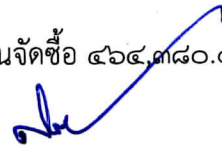 นจัดซื้อ ๔๖๔,๓๘๐.๐